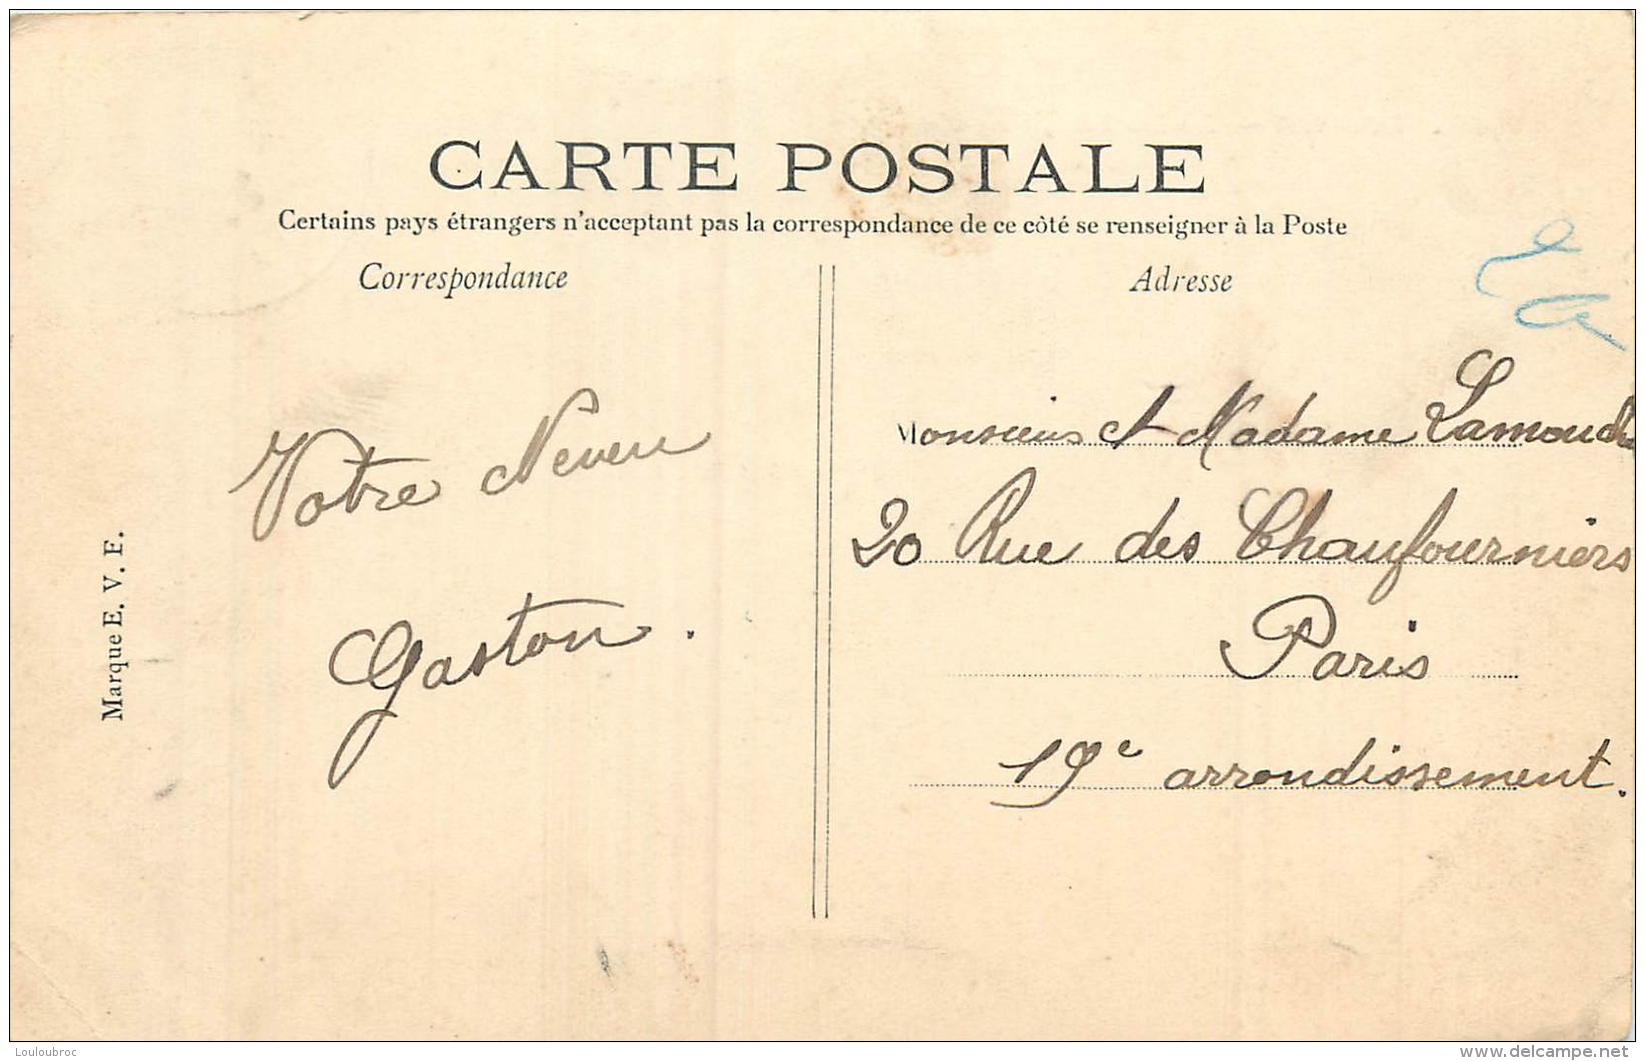 CARTE POSTALE
Certains pays étrangers n'acceptant pas la correspondance de ce côté se renseigner à la Poste
Correspondance
Votre Neveu
Gaston.
Marque E. V. F.
Adresse
Monsieur et Madame
20 Rue des Chaufourniers
Paris
19e arrondissement.
Louloubroc
www.delcampe.net